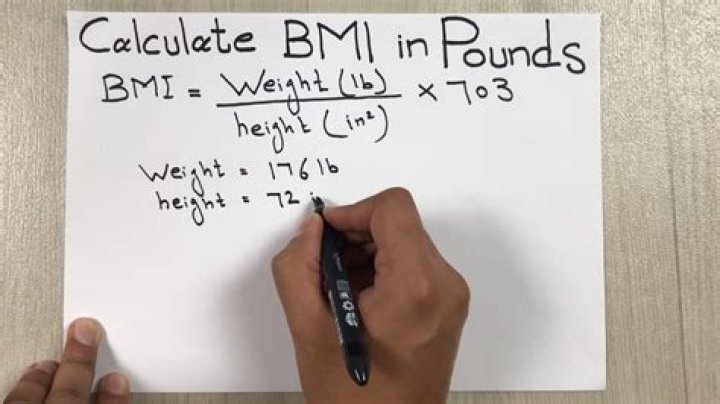 Calculate BMI in Pounds
BMI = Weight (lb) / height (in²) × 703
Weight = 176 lb
height = 72 i